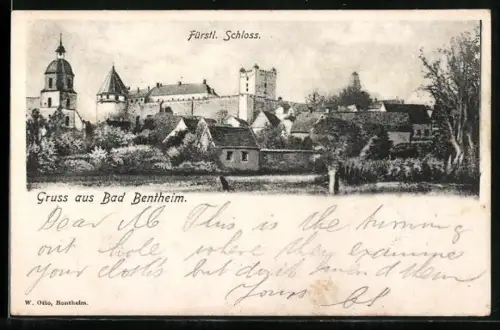 Fürstl. Schloss.
Gruss aus Bad Bentheim.
Dear M This is the turning
out hole where they examine
your cloths but don't mend them
Yours
W. Otto, Bentheim.